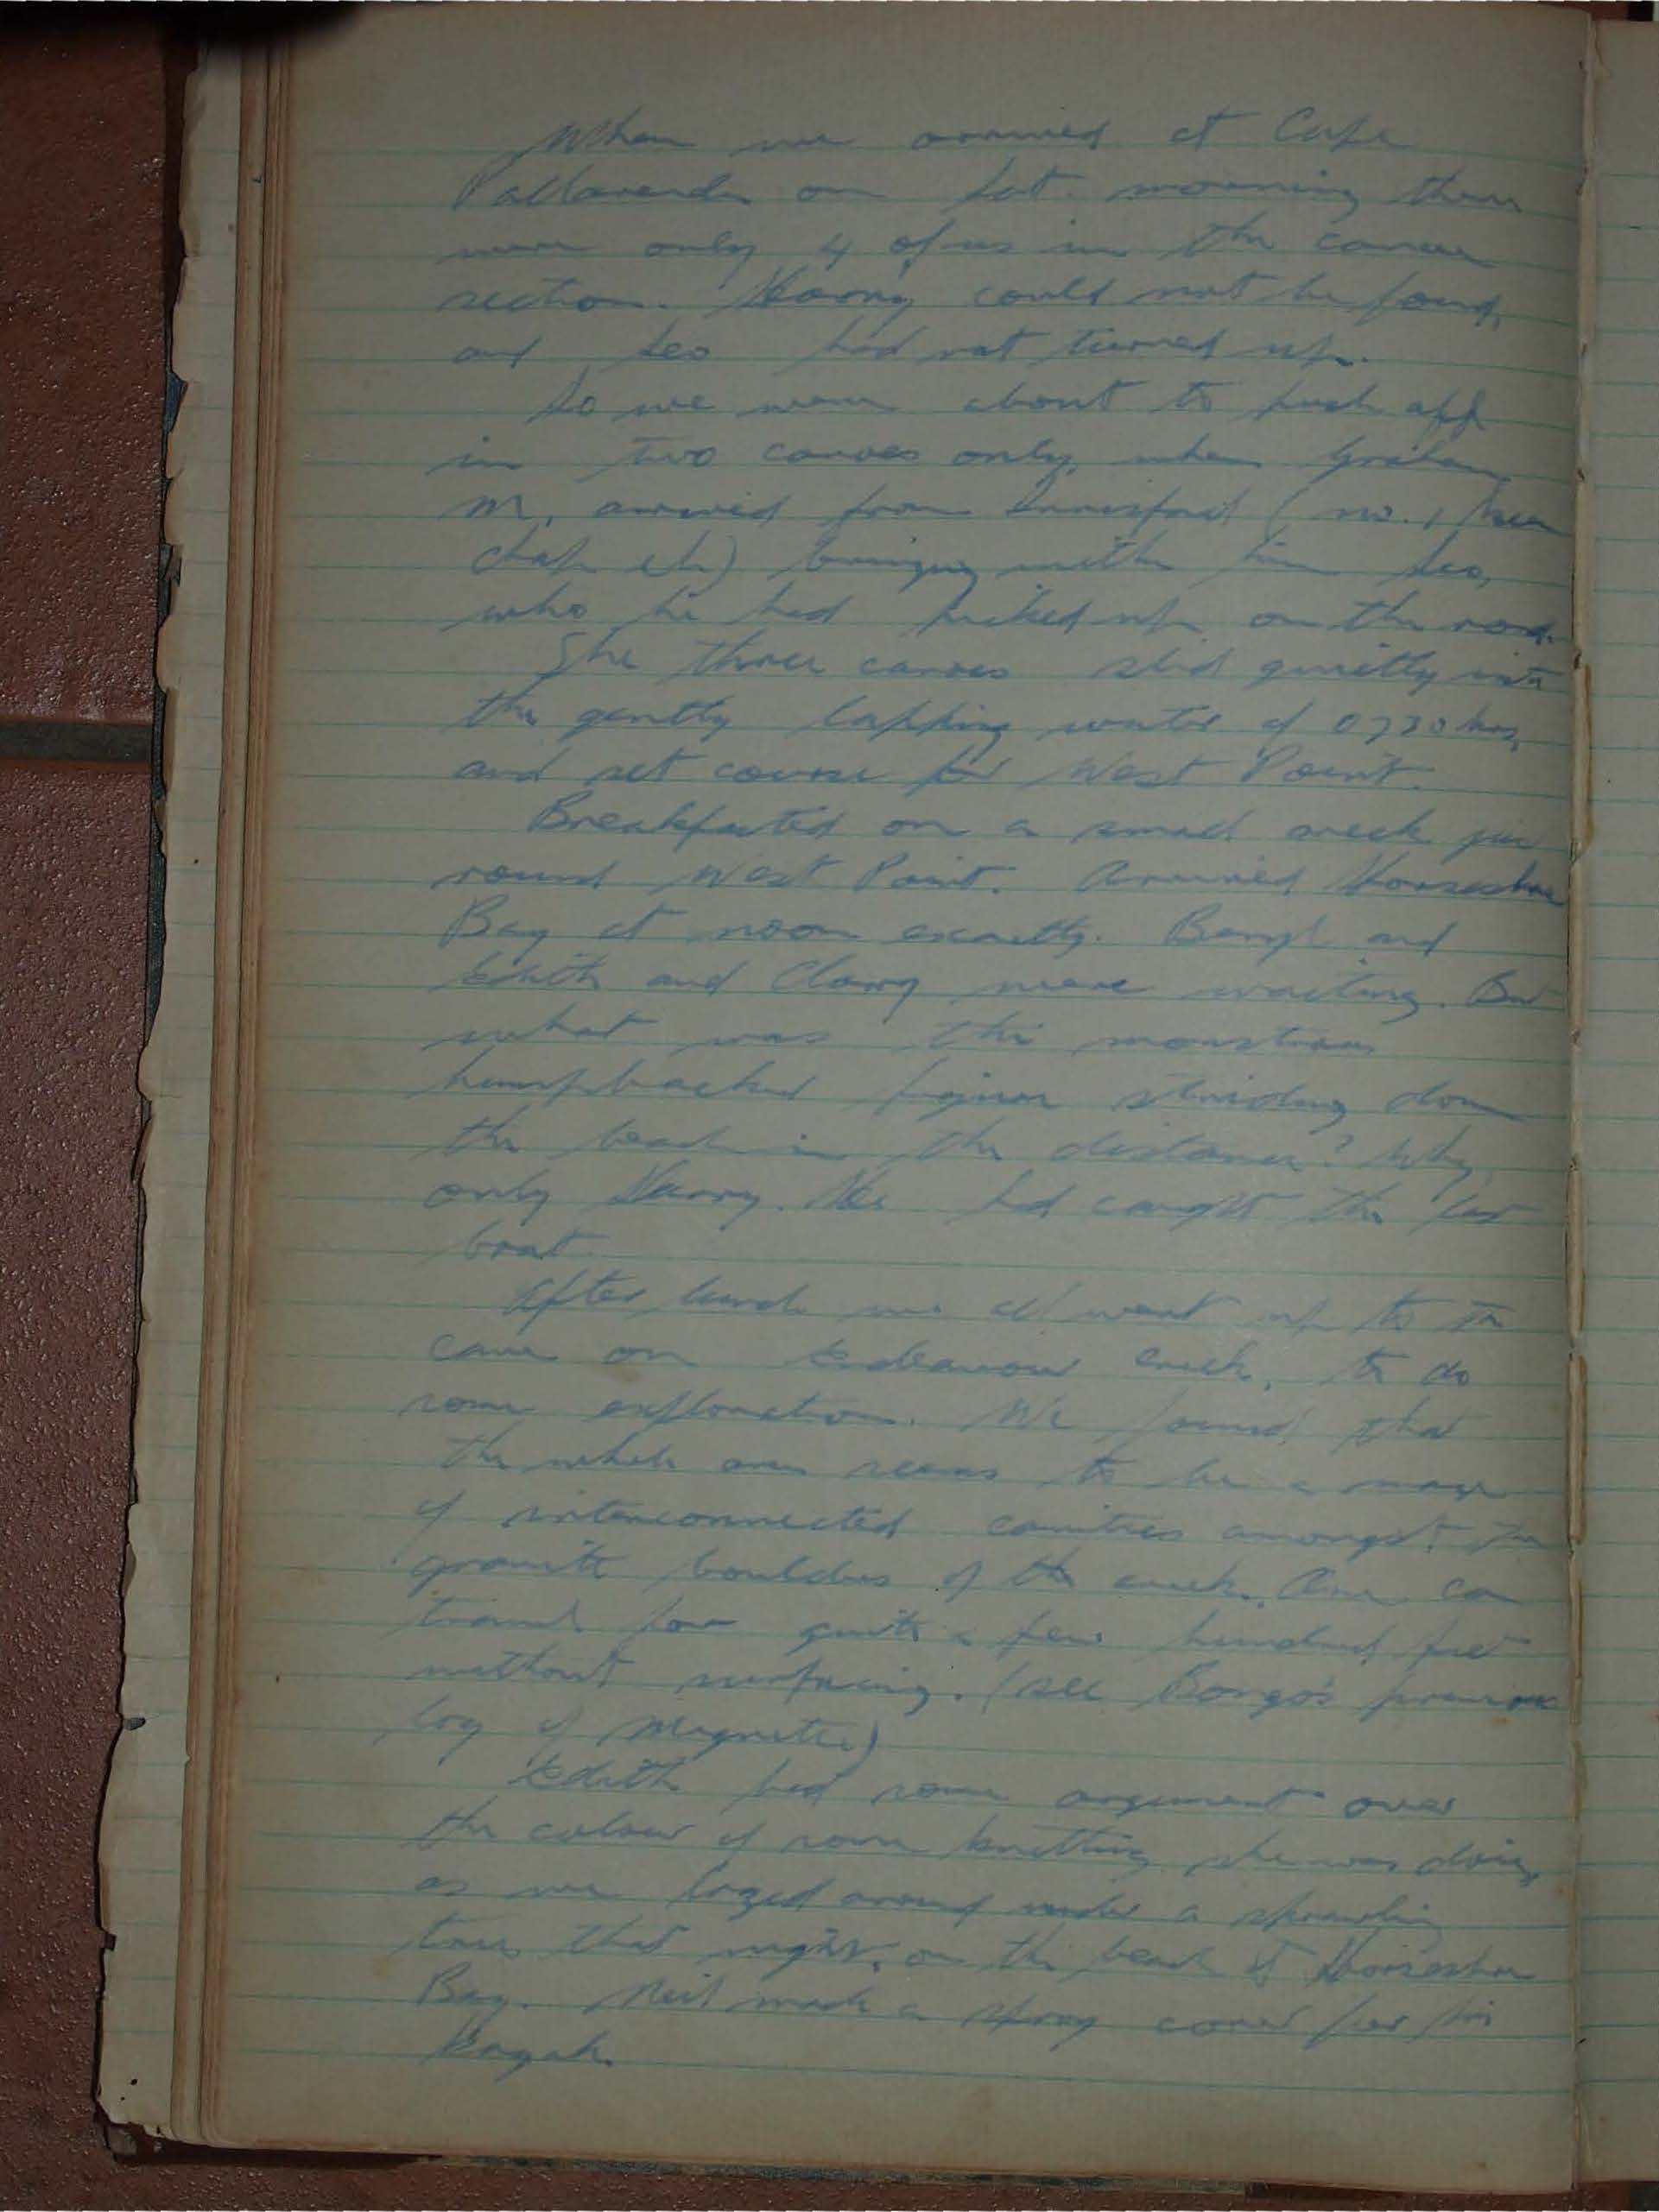 When we arrived at Cape
Pallarenda on Sat. morning there
were only 4 of us in the canoe
section. Harry could not be found,
and Leo had not turned up.
So we were about to push off
in two canoes only, when Graham
M. arrived from Innisfail (no. 1
chap eh) bringing with him Leo,
who he had picked up on the road.
The three canoes slid quietly into
the gently lapping water at 0730 hrs,
and set course for West Point.
Breakfasted on a small creek just
round West Point. Arrived Horseshoe
Bay at noon exactly. Beryl and
Edith and Clary were waiting. But
what was this monstrous
humpbacked figure striding down
the beach in the distance? Why,
only Harry. He had caught the
boat.
After lunch we all went up to the
cave on Endeavour Creek, to do
some exploration. We found that
the whole area seems to be a maze
of interconnected cavities amongst the
granite boulders of the creek. One can
travel for quite a few hundred feet
without surfacing. (see Borgo's previous
log of Magnetic)
Edith had some argument over
the colour of some knitting she was doing,
as we lazed around under a sprawling
tree that night, on the beach at Horseshoe
Bay. Neil made a spray cover for his
Kayak.